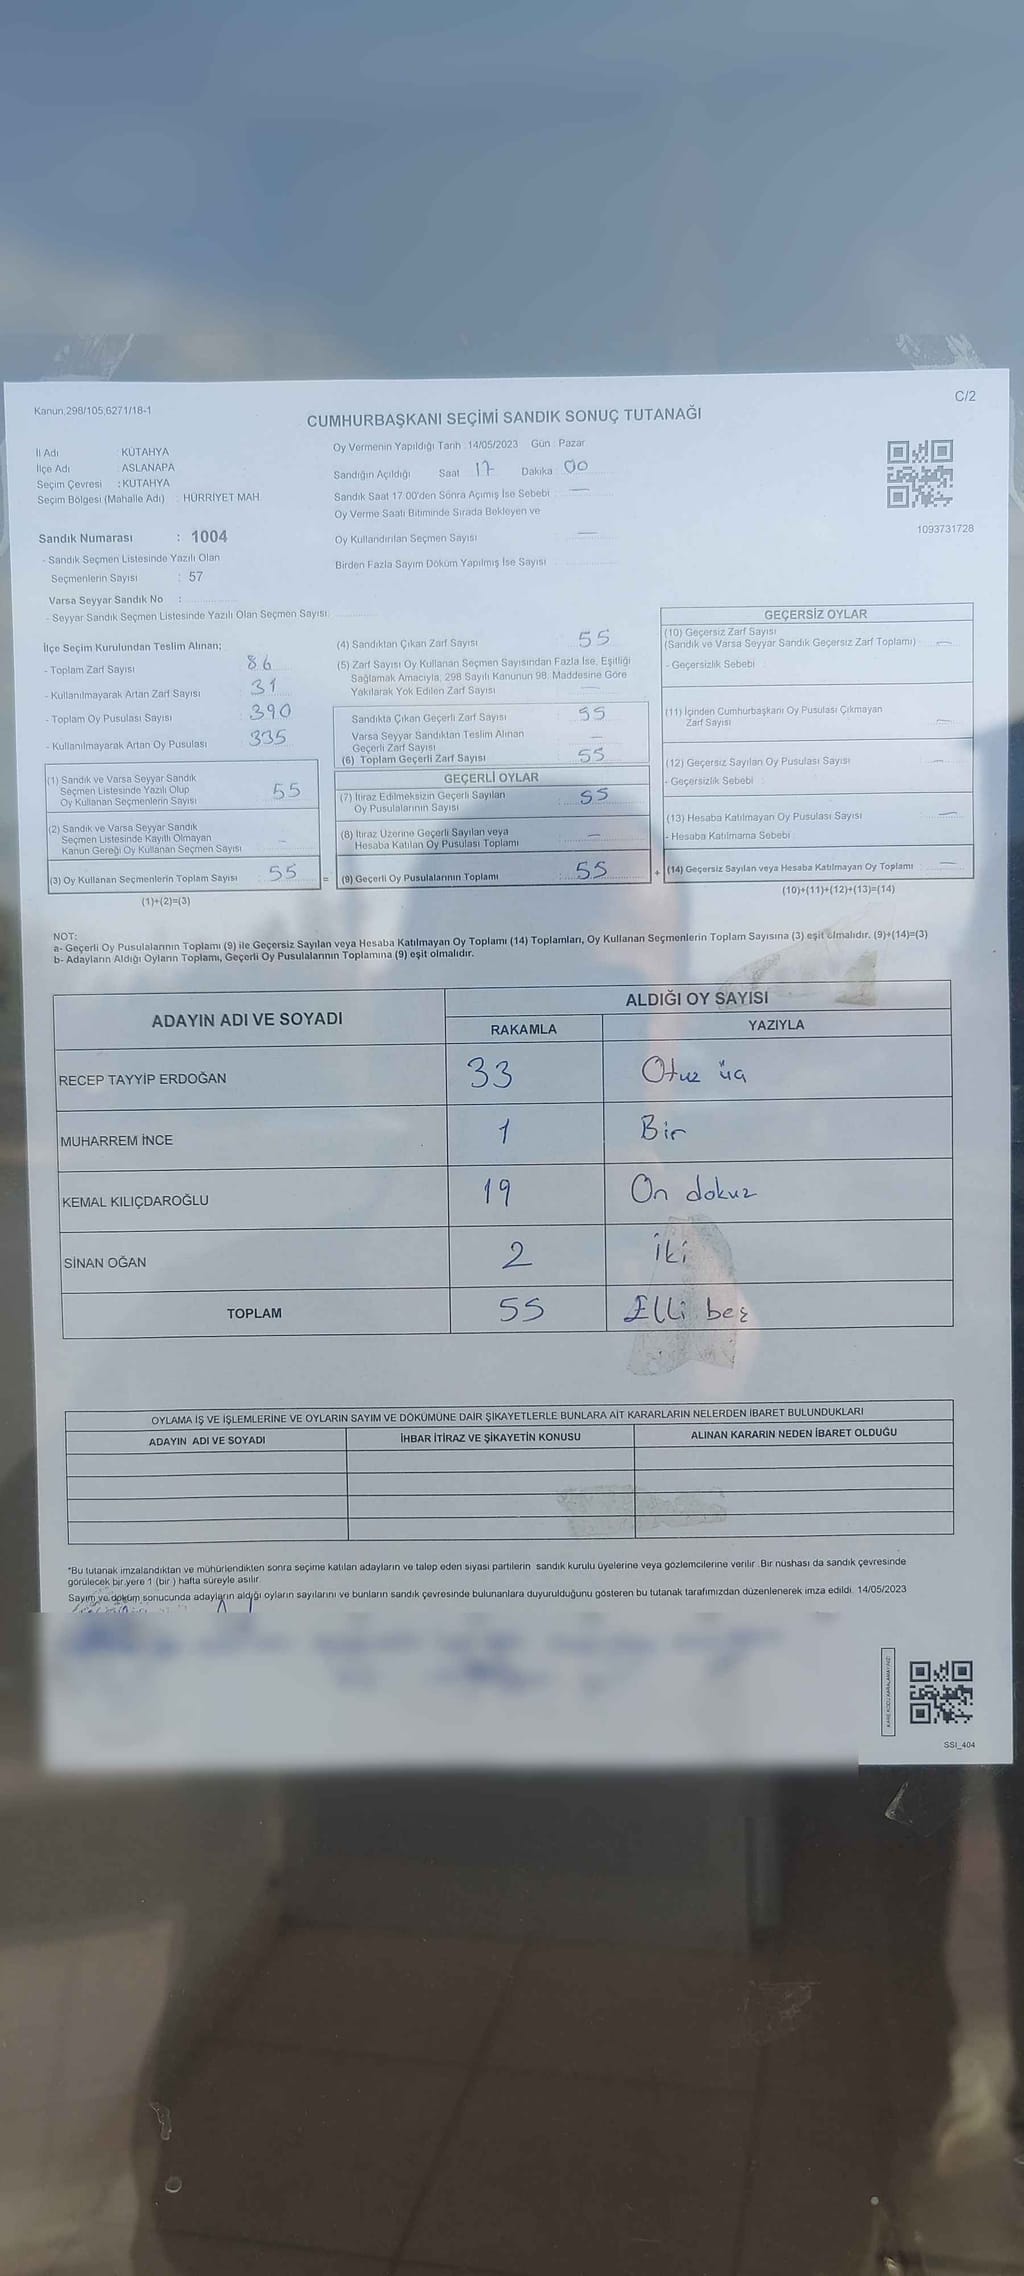 Kanun,298/105,6271/18-1
C/2
CUMHURBAŞKANI SEÇİMİ SANDIK SONUÇ TUTANAĞI
İl Adı : KÜTAHYA
İlçe Adı : ASLANAPA
Seçim Çevresi : KÜTAHYA
Seçim Bölgesi (Mahalle Adı) : HÜRRİYET MAH.
Oy Vermenin Yapıldığı Tarih : 14/05/2023 Gün : Pazar
Sandığın Açıldığı Saat 17 Dakika 00
Sandık Saat 17.00'den Sonra Açımış İse Sebebi : —
Oy Verme Saati Bitiminde Sırada Bekleyen ve
Oy Kullandırılan Seçmen Sayısı : —
Birden Fazla Sayım Döküm Yapılmış İse Sayısı
1093731728
Sandık Numarası : 1004
- Sandık Seçmen Listesinde Yazılı Olan
Seçmenlerin Sayısı : 57
Varsa Seyyar Sandık No :
- Seyyar Sandık Seçmen Listesinde Yazılı Olan Seçmen Sayısı
İlçe Seçim Kurulundan Teslim Alınan;
- Toplam Zarf Sayısı : 86
- Kullanılmayarak Artan Zarf Sayısı : 31
- Toplam Oy Pusulası Sayısı : 390
- Kullanılmayarak Artan Oy Pusulası : 335
(1) Sandık ve Varsa Seyyar Sandık
Seçmen Listesinde Yazılı Olup
Oy Kullanan Seçmenlerin Sayısı : 55
(2) Sandık ve Varsa Seyyar Sandık
Seçmen Listesinde Kayıtlı Olmayan
Kanun Gereği Oy Kullanan Seçmen Sayısı : —
(3) Oy Kullanan Seçmenlerin Toplam Sayısı : 55
(1)+(2)=(3)
(4) Sandıktan Çıkan Zarf Sayısı : 55
(5) Zarf Sayısı Oy Kullanan Seçmen Sayısından Fazla İse, Eşitliği
Sağlamak Amacıyla, 298 Sayılı Kanunun 98. Maddesine Göre
Yakılarak Yok Edilen Zarf Sayısı : —
Sandıkta Çıkan Geçerli Zarf Sayısı : 55
Varsa Seyyar Sandıktan Teslim Alınan
Geçerli Zarf Sayısı : —
(6) Toplam Geçerli Zarf Sayısı : 55
GEÇERLİ OYLAR
(7) İtiraz Edilmeksizin Geçerli Sayılan
Oy Pusulalarının Sayısı : 55
(8) İtiraz Üzerine Geçerli Sayılan veya
Hesaba Katılan Oy Pusulası Toplamı : —
= (9) Geçerli Oy Pusulalarının Toplamı : 55 +
GEÇERSİZ OYLAR
(10) Geçersiz Zarf Sayısı
(Sandık ve Varsa Seyyar Sandık Geçersiz Zarf Toplamı) : —
- Geçersizlik Sebebi
(11) İçinden Cumhurbaşkanı Oy Pusulası Çıkmayan
Zarf Sayısı —
(12) Geçersiz Sayılan Oy Pusulası Sayısı —
- Geçersizlik Sebebi :
(13) Hesaba Katılmayan Oy Pusulası Sayısı —
- Hesaba Katılmama Sebebi :
(14) Geçersiz Sayılan veya Hesaba Katılmayan Oy Toplamı : —
(10)+(11)+(12)+(13)=(14)
NOT:
a- Geçerli Oy Pusulalarının Toplamı (9) ile Geçersiz Sayılan veya Hesaba Katılmayan Oy Toplamı (14) Toplamları, Oy Kullanan Seçmenlerin Toplam Sayısına (3) eşit olmalıdır. (9)+(14)=(3)
b- Adayların Aldığı Oyların Toplamı, Geçerli Oy Pusulalarının Toplamına (9) eşit olmalıdır.
ADAYIN ADI VE SOYADI
ALDIĞI OY SAYISI
RAKAMLA YAZIYLA
RECEP TAYYİP ERDOĞAN 33 Otuz üç
MUHARREM İNCE 1 Bir
KEMAL KILIÇDAROĞLU 19 On dokuz
SİNAN OĞAN 2 İki
TOPLAM 55 Elli beş
OYLAMA İŞ VE İŞLEMLERİNE VE OYLARIN SAYIM VE DÖKÜMÜNE DAİR ŞİKAYETLERLE BUNLARA AİT KARARLARIN NELERDEN İBARET BULUNDUKLARI
ADAYIN ADI VE SOYADI İHBAR İTİRAZ VE ŞİKAYETİN KONUSU ALINAN KARARIN NEDEN İBARET OLDUĞU
*Bu tutanak imzalandıktan ve mühürlendikten sonra seçime katılan adayların ve talep eden siyasi partilerin sandık kurulu üyelerine veya gözlemcilerine verilir .Bir nüshası da sandık çevresinde
görülecek bir yere 1 (bir ) hafta süreyle asılır.
Sayım ve döküm sonucunda adayların aldığı oyların sayılarını ve bunların sandık çevresinde bulunanlara duyurulduğunu gösteren bu tutanak tarafımızdan düzenlenerek imza edildi. 14/05/2023
KARE KODU KARALAMAYINIZ!
SSI_404